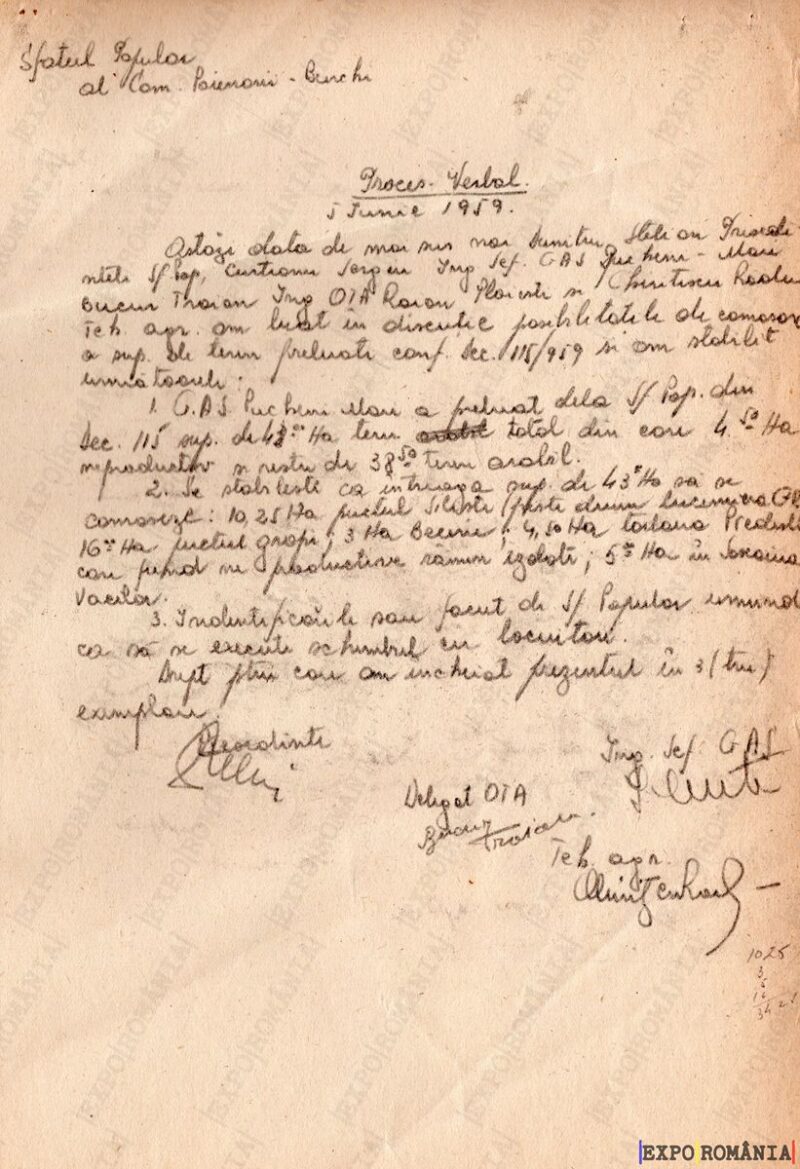 Sfatul Popular
al Com. Poienarii - Burchi
Proces-Verbal.
5 Iunie 1959.
Astăzi data de mai sus noi Dumitru Stelian
Sf Pop, Sergiu Ing Șef. GAS Pucheni - Mari
Bucur Troian Ing OTA Raion Ploiesti si Radu
Teh. agr. am luat în discutie posibilitatile de comasare
a sup. de teren preluate conf. Dec. 115/959 si am stabilit
următoarele:
1. G.A.S Pucheni Mari a preluat dela Sf Pop. din
Dec. 115 sup. de 43 Ha teren total din care 4.50 Ha
neproductiv si restu de 38 50 teren arabil.
2. Se stabileste ca intreaga sup. de 43 Ha sa se
comaseze: 10,25 Ha punctul Siliste (peste drum
16 Ha punctul gropi; 3 Ha; 4,50 Ha
care fiind ne productive rămân izolate; 5 Ha în
Vacilor.
3. Indentificările sau facut de Sf Popular urmînd
ca să se execute schimbul cu locuitori.
Drept ptru care am incheiat prezentul în 3 (trei)
exemplare.
Ing. Sef. GAS
Delegat OTA
Bucur Troian
Teh. agr.
1025
3
5
16
EXPO ROMÂNIA